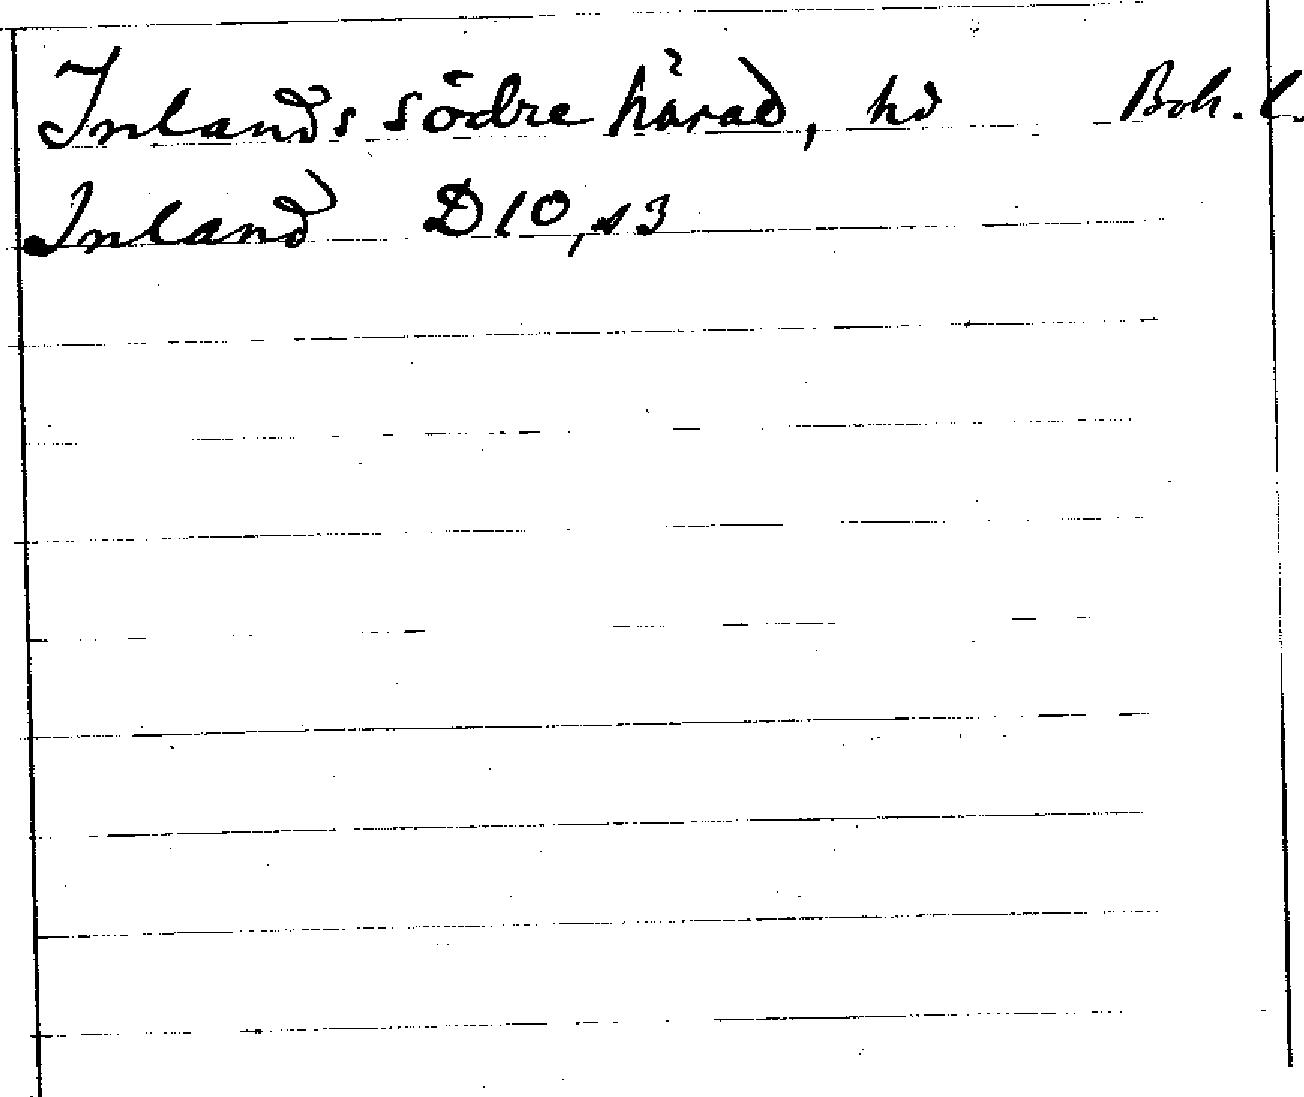 Inlands södre härad, hd Boh. l.
Inland D10, s3